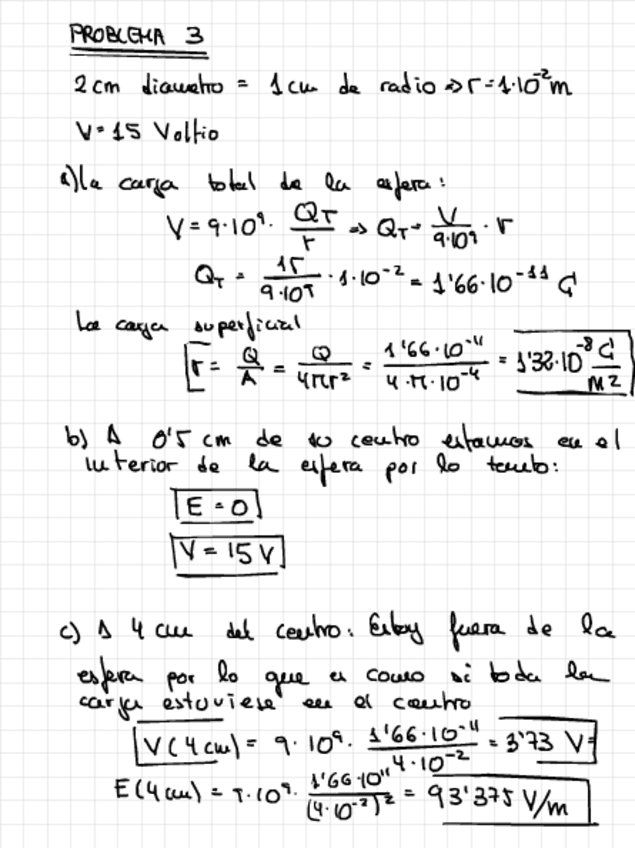 PROBLEMA 3
2 cm diametro = 1 cm de radio ⇒ r = 1·10⁻² m
V = 15 Voltio
a) la carga total de la esfera:
V = 9·10⁹ · Q_T / r ⇒ Q_T = V / 9·10⁹ · r
Q_T = 15 / 9·10⁹ · 1·10⁻² = 1'66·10⁻¹¹ C
La carga superficial
σ = Q / A = Q / 4πr² = 1'66·10⁻¹¹ / 4·π·10⁻⁴ = 1'32·10⁻⁸ C / m²
b) A 0'5 cm de su centro estamos en el
interior de la esfera por lo tanto:
E = 0
V = 15 V
c) A 4 cm del centro: Estoy fuera de la
esfera por lo que es como si toda la
carga estuviese en el centro
V(4 cm) = 9·10⁹ · 1'66·10⁻¹¹ / 4·10⁻² = 3'73 V
E(4 cm) = 9·10⁹ · 1'66·10¹¹ / (4·10⁻²)² = 93'375 V/m